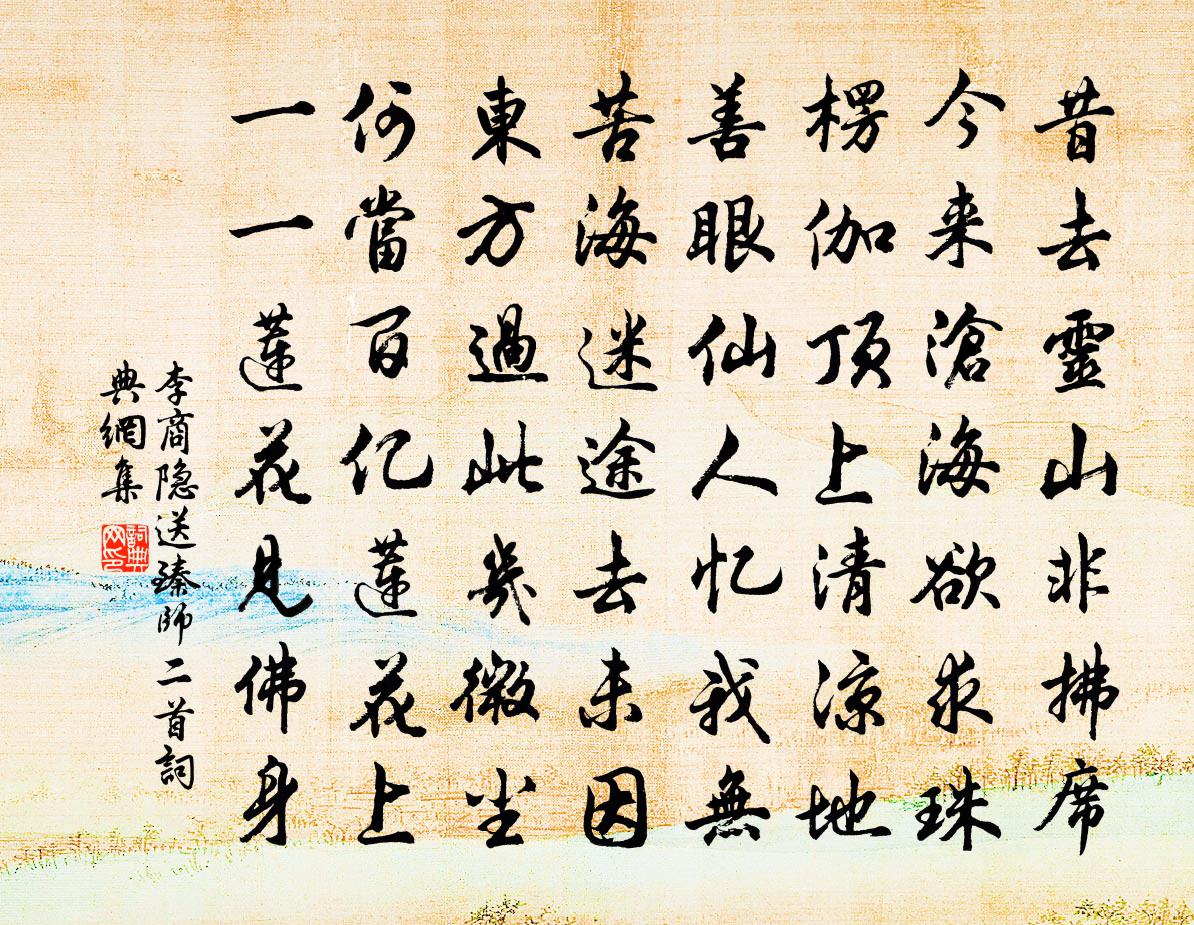 昔去靈山非拂席
今来滄海欲求珠
楞伽顶上清凉地
善眼仙人忆我無
苦海迷途去未因
東方過此幾微尘
何當百亿蓮花上
一一蓮花見佛身
李商隐送臻師二首詞
典網集
詞典网印